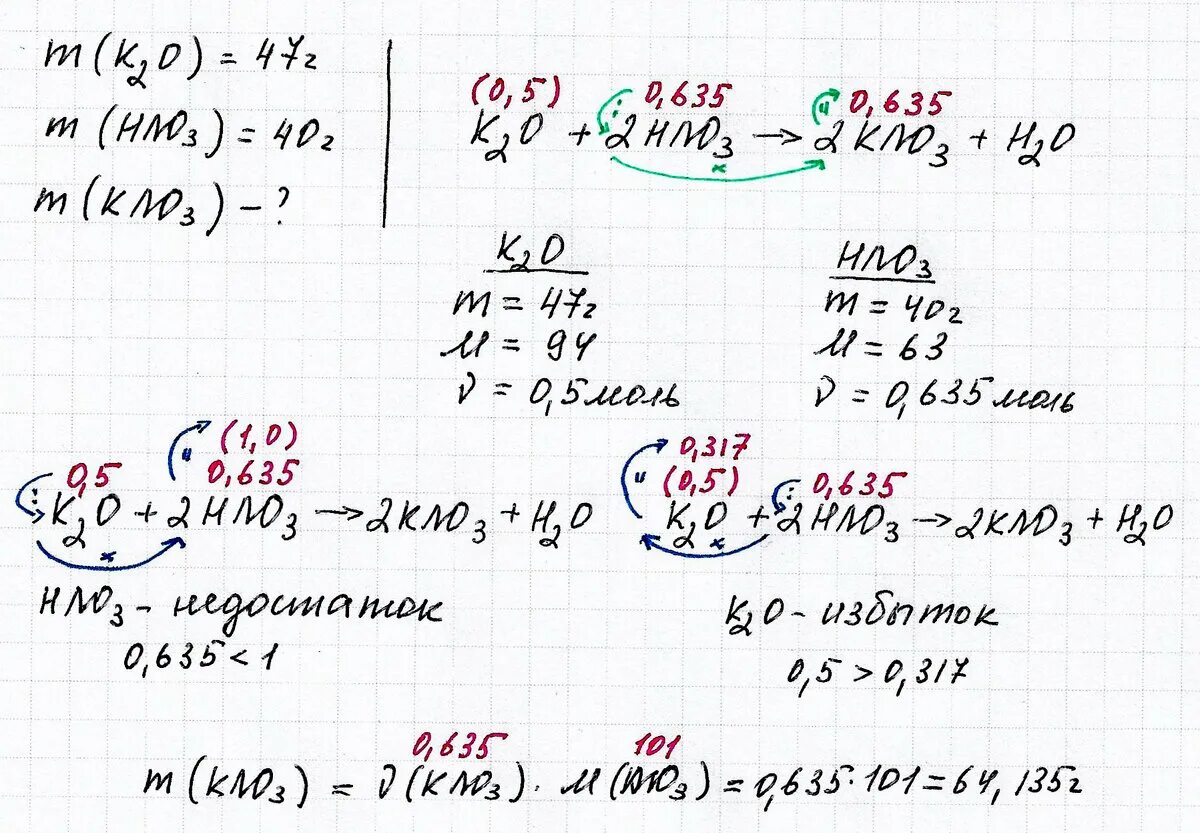 m (K₂O) = 47г
m (HNO₃) = 40г
m (KNO₃) – ?
(0,5) : 0,635 " 0,635
K₂O + 2HNO₃ → 2KNO₃ + H₂O
×
K₂O
m = 47г
M = 94
ν = 0,5 моль
HNO₃
m = 40г
M = 63
ν = 0,635 моль
(1,0)
: 0,5 " 0,635
K₂O + 2HNO₃ → 2KNO₃ + H₂O
×
HNO₃ – недостаток
0,635 < 1
0,317
" (0,5) : 0,635
K₂O + 2HNO₃ → 2KNO₃ + H₂O
×
K₂O – избыток
0,5 > 0,317
0,635 101
m (KNO₃) = ν (KNO₃) · M (KNO₃) = 0,635 · 101 = 64,135г